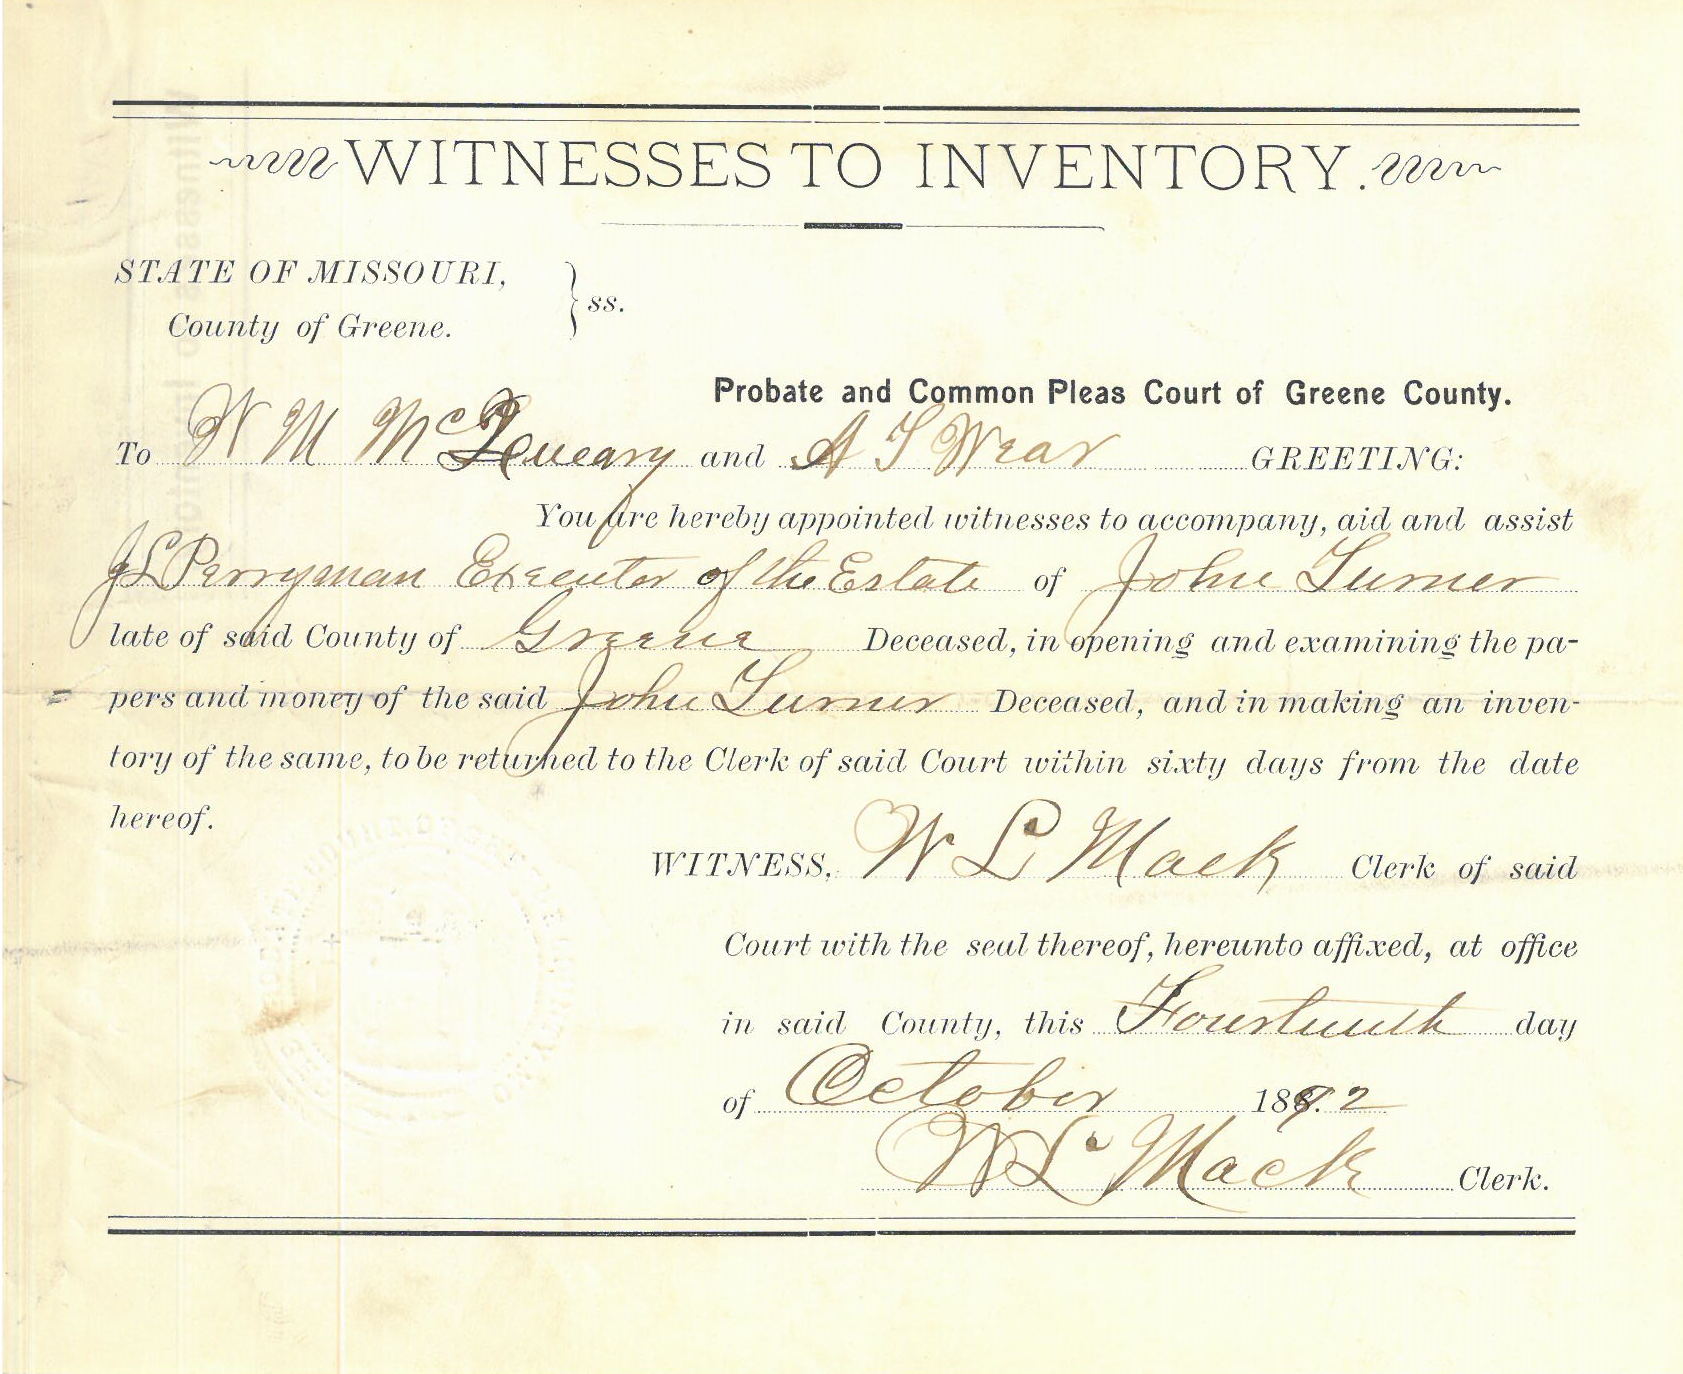 WITNESSES TO INVENTORY.
STATE OF MISSOURI,
County of Greene. } ss.
Probate and Common Pleas Court of Greene County.
To W M McQueary and A T Wear GREETING:
You are hereby appointed witnesses to accompany, aid and assist
J L Perryman Executor of the Estate of John Turner
late of said County of Greene Deceased, in opening and examining the pa-
pers and money of the said John Turner Deceased, and in making an inven-
tory of the same, to be returned to the Clerk of said Court within sixty days from the date
hereof.
WITNESS, W L Mack Clerk of said
Court with the seal thereof, hereunto affixed, at office
in said County, this Fourteenth day
of October 1892
W L Mack Clerk.